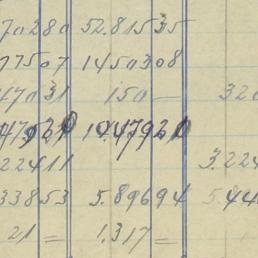 70280 52.81535
77507 1450308
47031 150 — 320
10.47920
22411 3.224
33853 5.89694 5.44
21 = 1.317 =